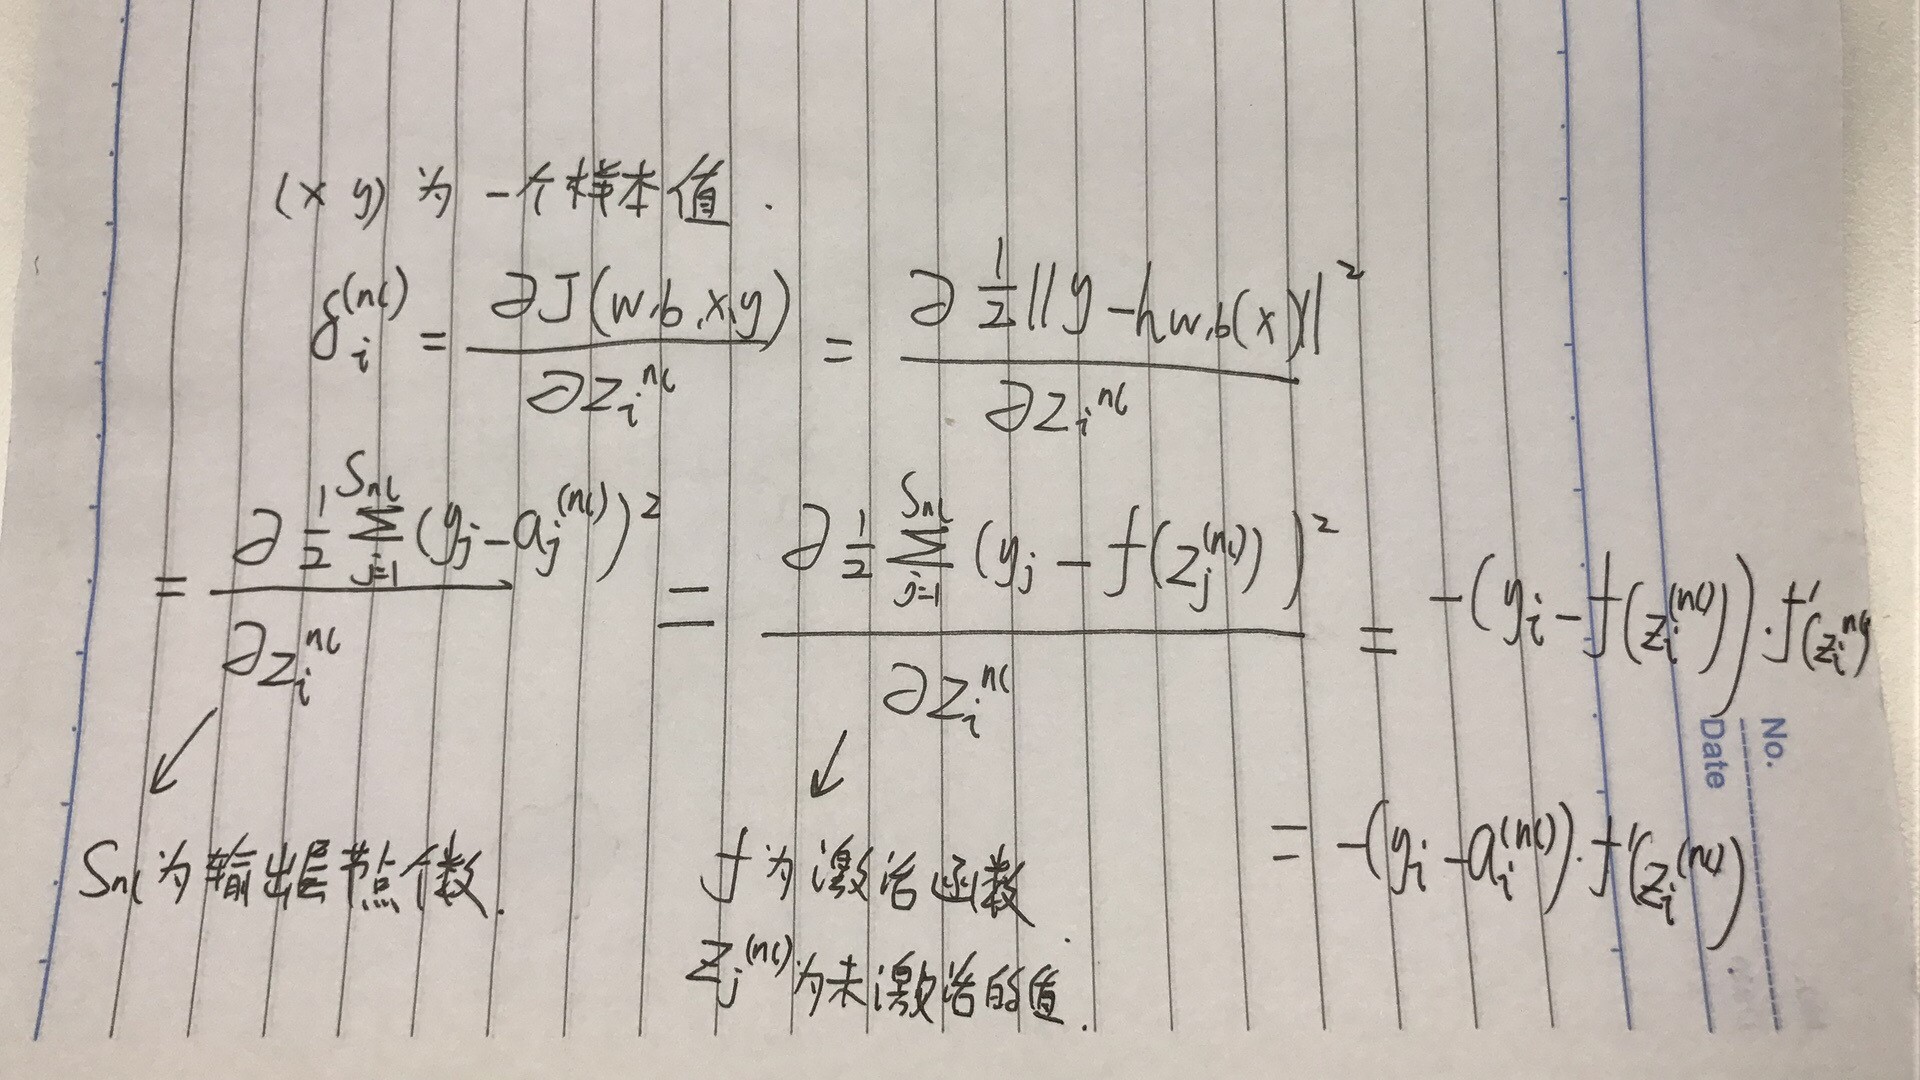 (x y) 为一个样本值.
δ_i^(nl) = ∂J(w,b,x,y) / ∂z_i^nl = ∂ 1/2 ||y - h_w,b(x)||^2 / ∂z_i^nl
= ∂ 1/2 Σ_{j=1}^{S_nl} (y_j - a_j^(nl))^2 / ∂z_i^nl = ∂ 1/2 Σ_{j=1}^{S_nl} (y_j - f(z_j^(nl)))^2 / ∂z_i^nl = -(y_i - f(z_i^(nl)))·f'(z_i^nl)
= -(y_i - a_i^(nl))·f'(z_i^(nl))
S_nl 为输出层节点个数.
f 为激活函数
z_j^(nl) 为未激活的值.
No.
Date